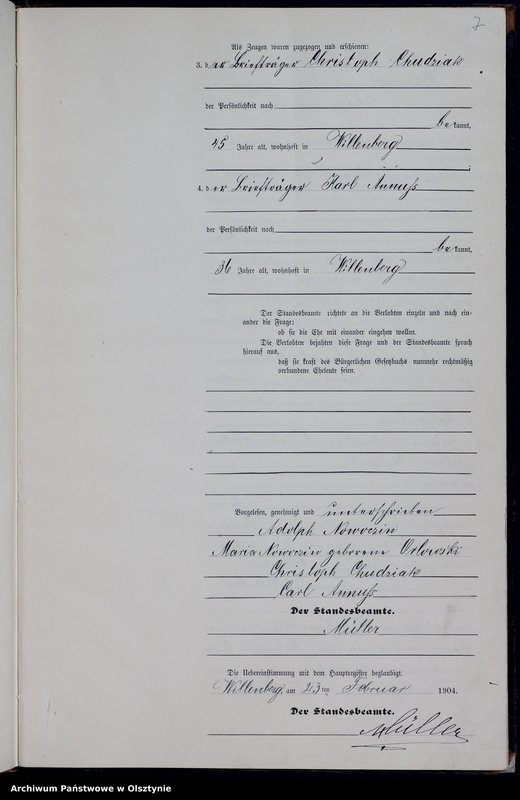 7
Als Zeugen waren zugezogen und erschienen:
3. der Briefträger Christoph Chudziak
der Persönlichkeit nach
bekannt,
45 Jahre alt, wohnhaft in Willenberg
;
4. der Briefträger Karl Annuss
der Persönlichkeit nach
bekannt,
36 Jahre alt, wohnhaft in Willenberg
Der Standesbeamte richtete an die Verlobten einzeln und nach ein-
ander die Frage:
ob sie die Ehe mit einander eingehen wollen.
Die Verlobten bejahten diese Frage und der Standesbeamte sprach
hierauf aus,
daß sie kraft des Bürgerlichen Gesetzbuchs nunmehr rechtmäßig
verbundene Eheleute seien.
Vorgelesen, genehmigt und unterschrieben
Adolph Nowoczin
Maria Nowoczin geborene Orlowski
Christoph Chudziak
Carl Annuss
Der Standesbeamte.
Müller
Die Uebereinstimmung mit dem Hauptregister beglaubigt.
Willenberg, am 23 ten Februar 1904.
Der Standesbeamte.
Müller
Archiwum Państwowe w Olsztynie